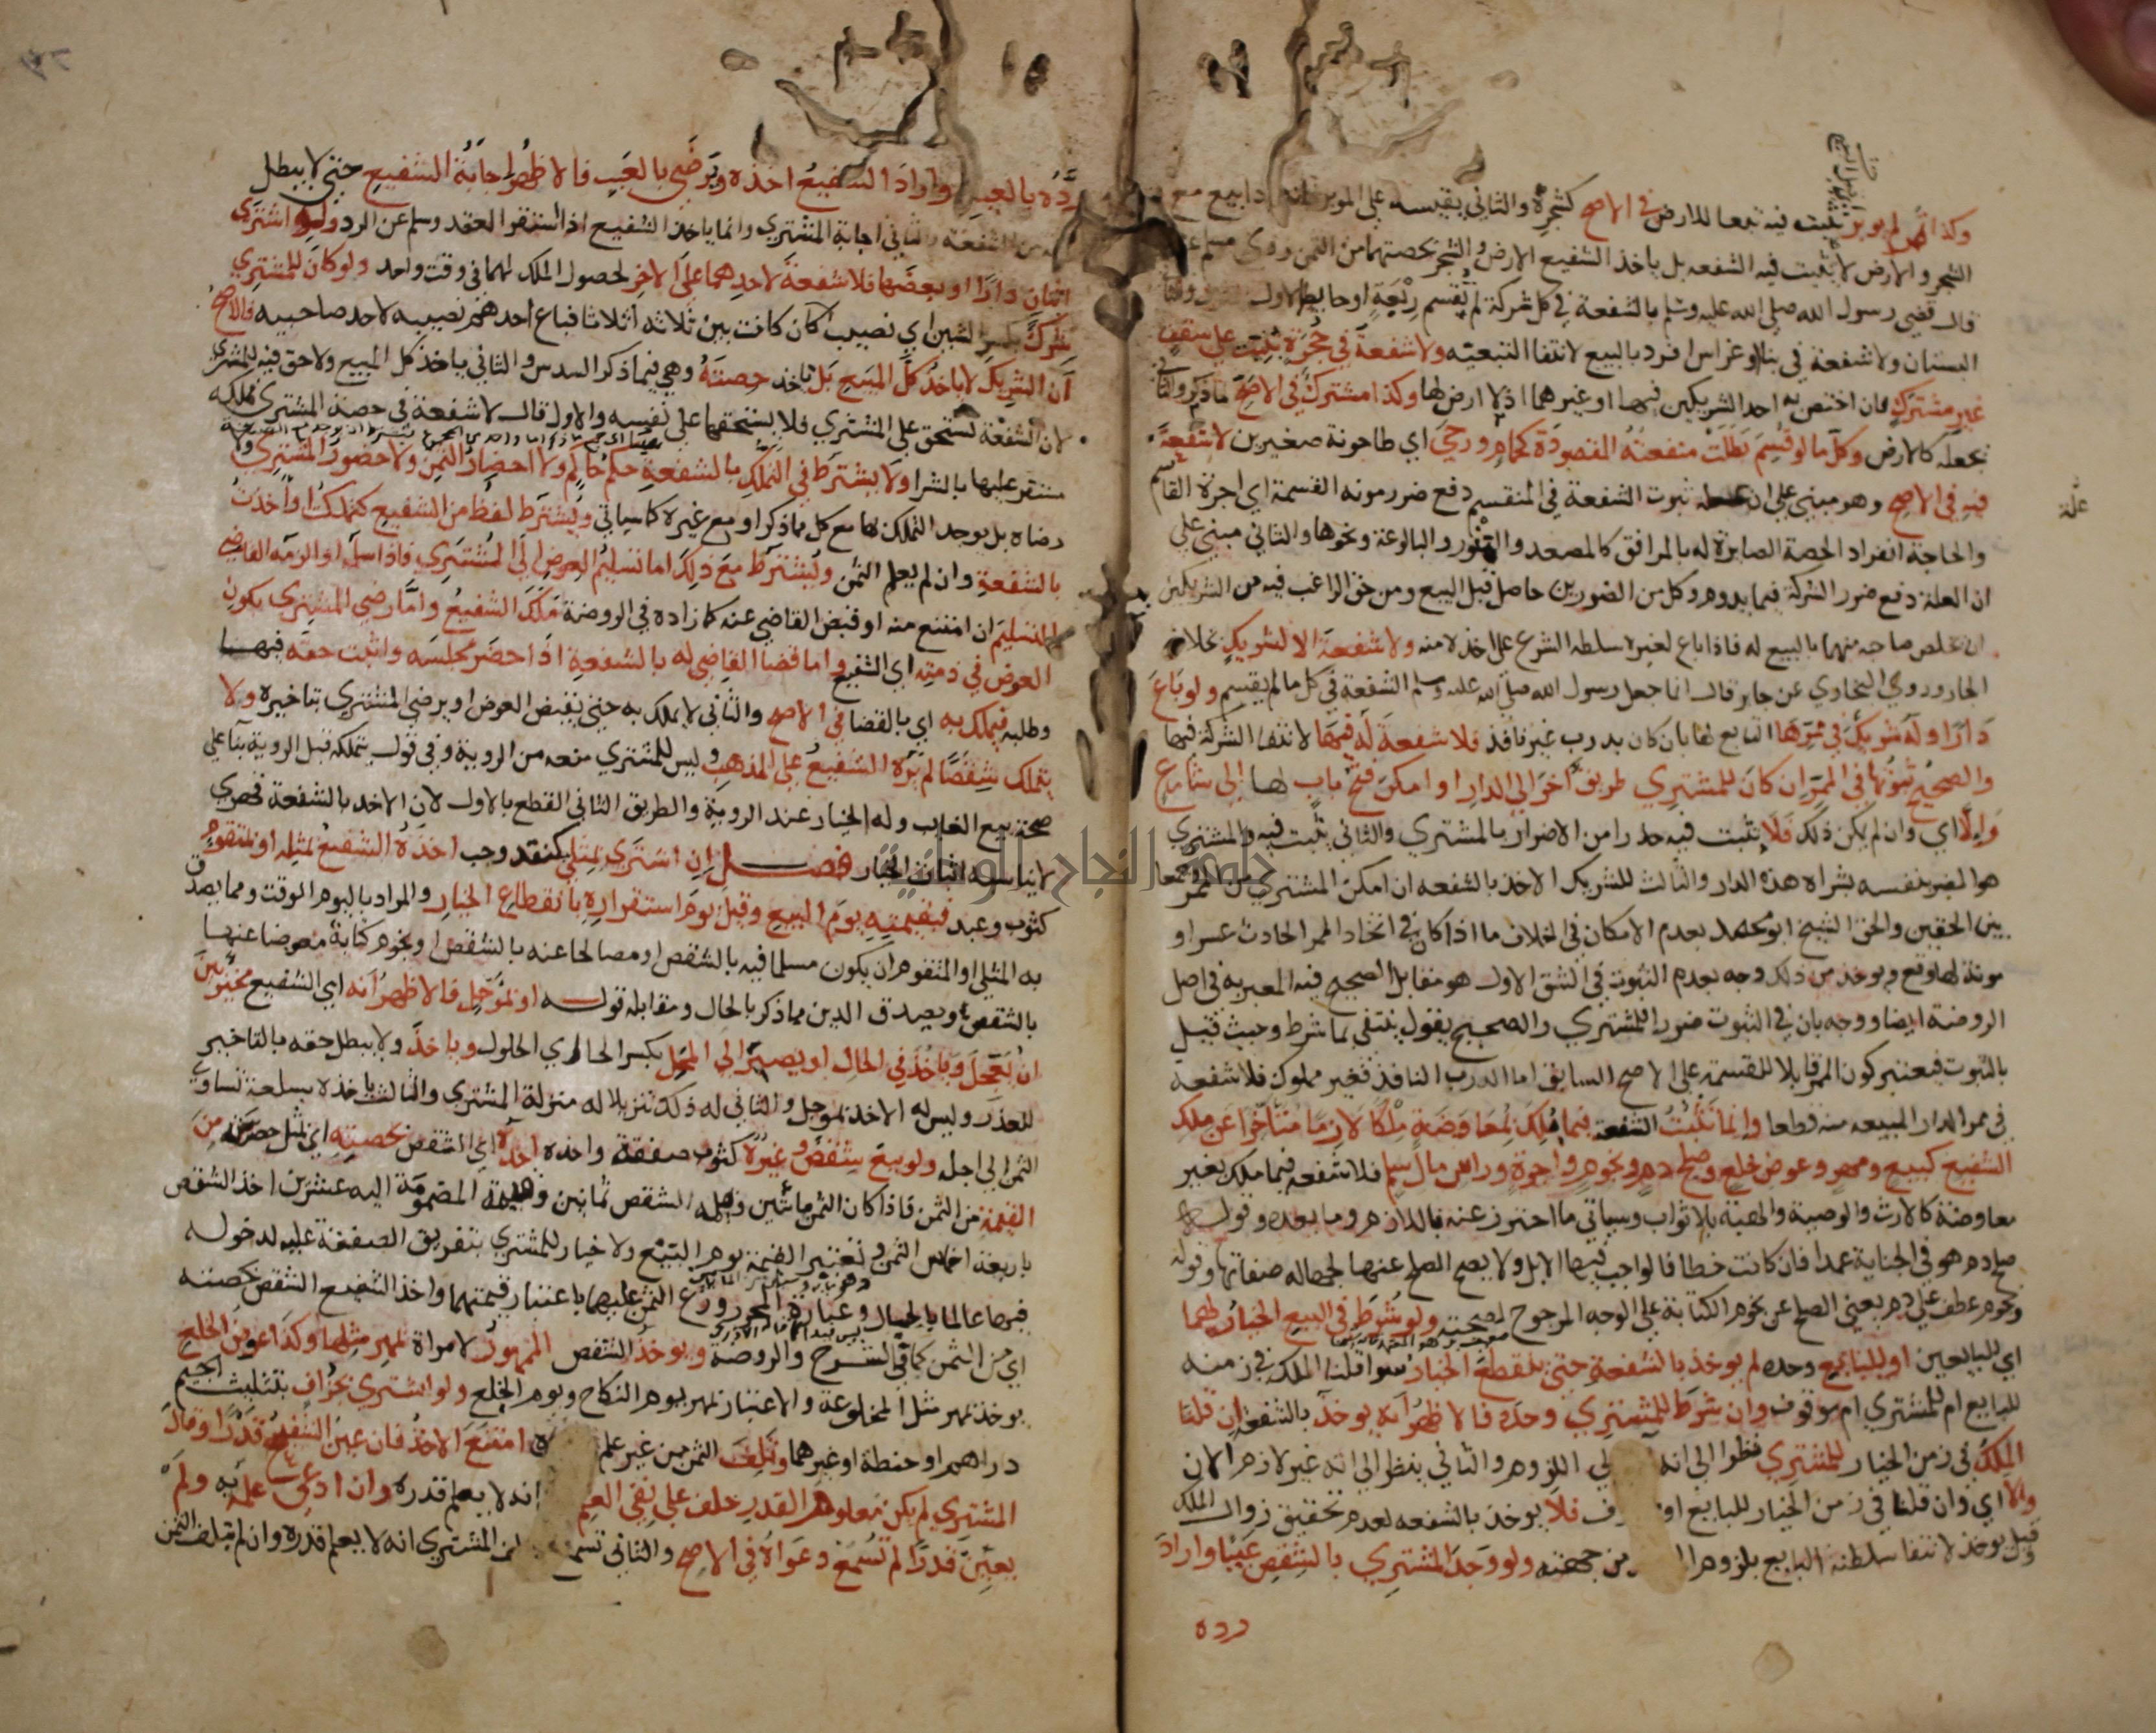 وكذا ثمر لم يوبر تثبت فيه تبعا للارض في الاصح كشجرة والثاني يقيسه على الموبر فانه اذا بيع مع
الشجر والارض لا تثبت فيه الشفعه بل ياخذ الشفيع الارض والشجر بحصتهما من الثمن روى مسلم
قال قضى رسول الله صلى الله عليه وسلم بالشفعة في كل شركة لم تقسم ربعة او حايط
البستان ولا شفعة في بناء او غراس افرد بالبيع لانتفا التبعيته ولا شفعة في حجرة بنيت على سقف
غير مشترك بان اختص به احد الشريكين فيهما او غيرهما اذ لا ارض لها وكذا مشترك في الاصح لما ذكر
يجعله كالارض وكل ما لو قسم بطلت منفعته المقصودة كحمام ورحى اي طاحونة صغيرين لا شفعة
فيه في الاصح وهو مبني على ان علة ثبوت الشفعة في المنقسم دفع ضرر مونه القسمة اي اجرة القاسم
علة
والحاجة الى افراد الحصة الصايرة له بالمرافق كالمصعد والمنور والبالوعة ونحوها والثاني مبني على
ان العلة دفع ضرر الشركة فيما يدوم وكل من الضررين حاصل قبل البيع ومن حق الراغب فيه من الشريكين
ان يخلص صاحبه منهما بالبيع له فاذا باع لغيره سلطه الشرع على اخذه منه ولا شفعة الا لشريك بخلاف
الجار وروى البخاري عن جابر قال انما جعل رسول الله صلى الله عليه وسلم الشفعة في كل ما لم يقسم ولو باع
دارا وله شريك في ممرها التابع لها بان كان بدرب غير نافذ فلا شفعة له فيها لانتفا الشركة فيها
والصحيح ثبوتها في الممر ان كان للمشتري طريق اخر الى الدار او امكن فتح باب لها الى شارع
والا اي وان لم يكن ذلك فلا تثبت فيه حذرا من الاضرار بالمشتري والثاني تثبت فيه والمشتري
هو المضر بنفسه بشراه هذه الدار والثالث للشريك الاخذ بالشفعه ان امكن المشتري من الممر جمعا
بين الحقين والحق الشيخ ابو محمد بعدم الامكان في الخلاف ما اذا كان في اتخاذ الممر الحادث عسر او
مونة لها وقع ويوخذ من ذلك وجه بعدم الثبوت في الشق الاول هو مقابل الصحيح فيه المعبر به في اصل
الروضة ايضا ووجه بان في الثبوت ضررا للمشتري والصحيح يقول ينتفي بما شرط وحيث قيل
بالثبوت فيعتبر كون الممر قابلا للقسمة على الاصح السابق اما الدرب النافذ فغير مملوك فلا شفعة
في ممر الدار المبيعه منه قطعا وانما تثبت الشفعة فيما ملك بمعاوضة ملكا لازما متاخرا عن ملك
الشفيع كمبيع ومهر وعوض خلع وصلح دم ونجوم واجرة وراس مال سلم فلا شفعه فيما ملك بغير
معاوضة كالارث والوصية والهبة بلا ثواب وسياتي ما احترز عنه باللازم وما بعده وقوله
صلح دم هو في الجناية عمدا فان كانت خطا فالواجب فيها الابل ولا يصح الصلح عنها لجهاله صفاتها وقوله
ونجوم عطف على دم يعني الصلح عن نجوم الكتابة على الوجه المرجوح لصحته ولو شرط في البيع الخيار لهما
اي للبايعين او للبايع وحده لم يوخذ بالشفعة حتى ينقطع الخيار سوا قلنا الملك في زمنه
للبايع ام للمشتري ام موقوف وان شرط للمشتري وحده فالاظهر انه يوخذ بالشفعة ان قلنا
الملك في زمن الخيار للمشتري نظرا الى انه الى اللزوم والثاني ينظر الى انه غير لازم الان
والا اي وان قلنا في زمن الخيار للبايع او فلا يوخذ بالشفعه لعدم تحقيق زوال الملك
وقيل يوخذ لانتفا سلطنة البايع بلزوم من جهته ولو وجد المشتري بالشقص عيبا واراد
رده
رده بالعيب واراد الشفيع اخذه ويرضى بالعيب فالاظهر اجابة الشفيع حتى لا يبطل
من الشفعة والثاني اجابة المشتري وانما ياخذ الشفيع اذا استقر العقد وسلم عن الرد ولو اشترى
اثنان دارا او بعضها فلا شفعة لاحدهما على الاخر لحصول الملك لهما في وقت واحد ولو كان للمشتري
شرك بكسر الشين اي نصيب كان كانت بين ثلاثة اثلاثا فباع احدهم نصيبه لاحد صاحبيه فالاصح
ان الشريك لا ياخذ كل المبيع بل ياخذ حصته وهي فيما ذكر السدس والثاني ياخذ كل المبيع ولا حق فيه للمشتري
لان الشفعة تستحق على المشتري فلا يستحقها على نفسه والاول قال لا شفعة في حصة المشتري فملكه
مستقر عليها بالشرا ولا يشترط في التملك بالشفعة حكم حاكم ولا احضار الثمن ولا حضور المشتري ولا
رضاه بل يوجد التملك بها مع كل مما ذكر او مع غيره كما سياتي ويشترط لفظ من الشفيع كتملكت او اخذت
بالشفعة وان لم يعلم الثمن ويشترط مع ذلك اما تسليم العوض الى المشتري فاذا تسلمه او الزمه القاضي
التسليم ان امتنع منه او قبض القاضي عنه كما زاده في الروضة ملك الشفيع واما رضى المشتري بكون
العوض في ذمته اي الشفيع واما قضا القاضي له بالشفعة اذا حضر مجلسه واثبت حقه فيها
وطلبه فيملك به اي بالقضا في الاصح والثاني لا يملك به حتى يقبض العوض او يرضى المشتري بتاخيره ولا
يتملك شقصا لم يره الشفيع على المذهب وليس للمشتري منعه من الروية وفي قول يتملكه قبل الروية بنا على
صحة بيع الغايب وله الخيار عند الروية والطريق الثاني القطع بالاول لان الاخذ بالشفعة قهري
لا يناسبه اثبات الخيار فصل ان اشترى بمثلي كنقد وحب اخذه الشفيع بمثله او بمتقوم
كثوب وعبد فبقيمته يوم البيع وقيل يوم استقراره بانقطاع الخيار والمراد باليوم الوقت ومما يصدق
به المثلي او المتقوم ان يكون مسلما فيه بالشقص او مصالحا عنه بالشقص او نجوم كتابة معوضا عنها
بالشقص ويصدق الدين مما ذكر بالحال ومقابله قوله او بموجل فالاظهر انه اي الشفيع مخير بين
ان يعجل وياخذ في الحال او يصبر الى المحل بكسر الحا اي الحلول وياخذ ولا يبطل حقه بالتاخير
للعذر وليس له الاخذ بموجل والثاني له ذلك تنزيلا له منزلة المشتري والثالث ياخذه بسلعة تساوي
الثمن الى اجل ولو بيع شقص وغيره كثوب صفقة واحدة اخذه اي الشقص بحصته اي بمثل حصته من
القيمة من الثمن فاذا كان الثمن مائتين وقيمة الشقص ثمانين وقيمة المضمومة اليه عشرين اخذ الشقص
باربعة اخماس الثمن وتعتبر القيمة يوم البيع ولا خيار للمشتري بتفريق الصفقة عليه لدخوله
فيها عالما بالحال وعبارة المحرر وزع الثمن عليهما باعتبار قيمتهما واخذ الشفيع الشقص بحصته
اي من الثمن كما في الشرح والروضة ويوخذ الشقص الممهور لامراة بمهر مثلها وكذا عوض الخلع
يوخذ بمهر مثل المخلوعة والاعتبار بمهر يوم النكاح ويوم الخلع ولو اشترى بجزاف بتثليث الجيم
دراهم او حنطة او غيرهما وتلف الثمن من غير علم امتنع الاخذ فان عين الشفيع قدرا وقال
المشتري لم يكن معلوم القدر حلف على نفي العلم انه لا يعلم قدره وان ادعى علمه به ولم
يعين قدرا لم تسمع دعواه في الاصح والثاني تسمع المشتري انه لا يعلم قدره وان لم يتلف الثمن
جامعة النجاح الوطنية